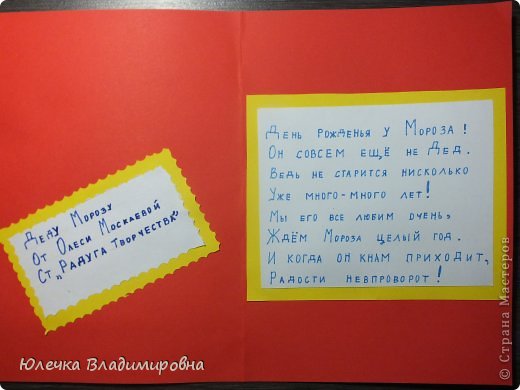 Деду Морозу
От Олеси Москаевой
Ст „Радуга творчества"
День рожденья у Мороза!
Он совсем ещё не Дед.
Ведь не старится нисколько
Уже много-много лет!
Мы его все любим очень,
Ждём Мороза целый год.
И когда он кнам приходит,
Радости невпроворот!
Юлечка Владимировна
© Страна Мастеров